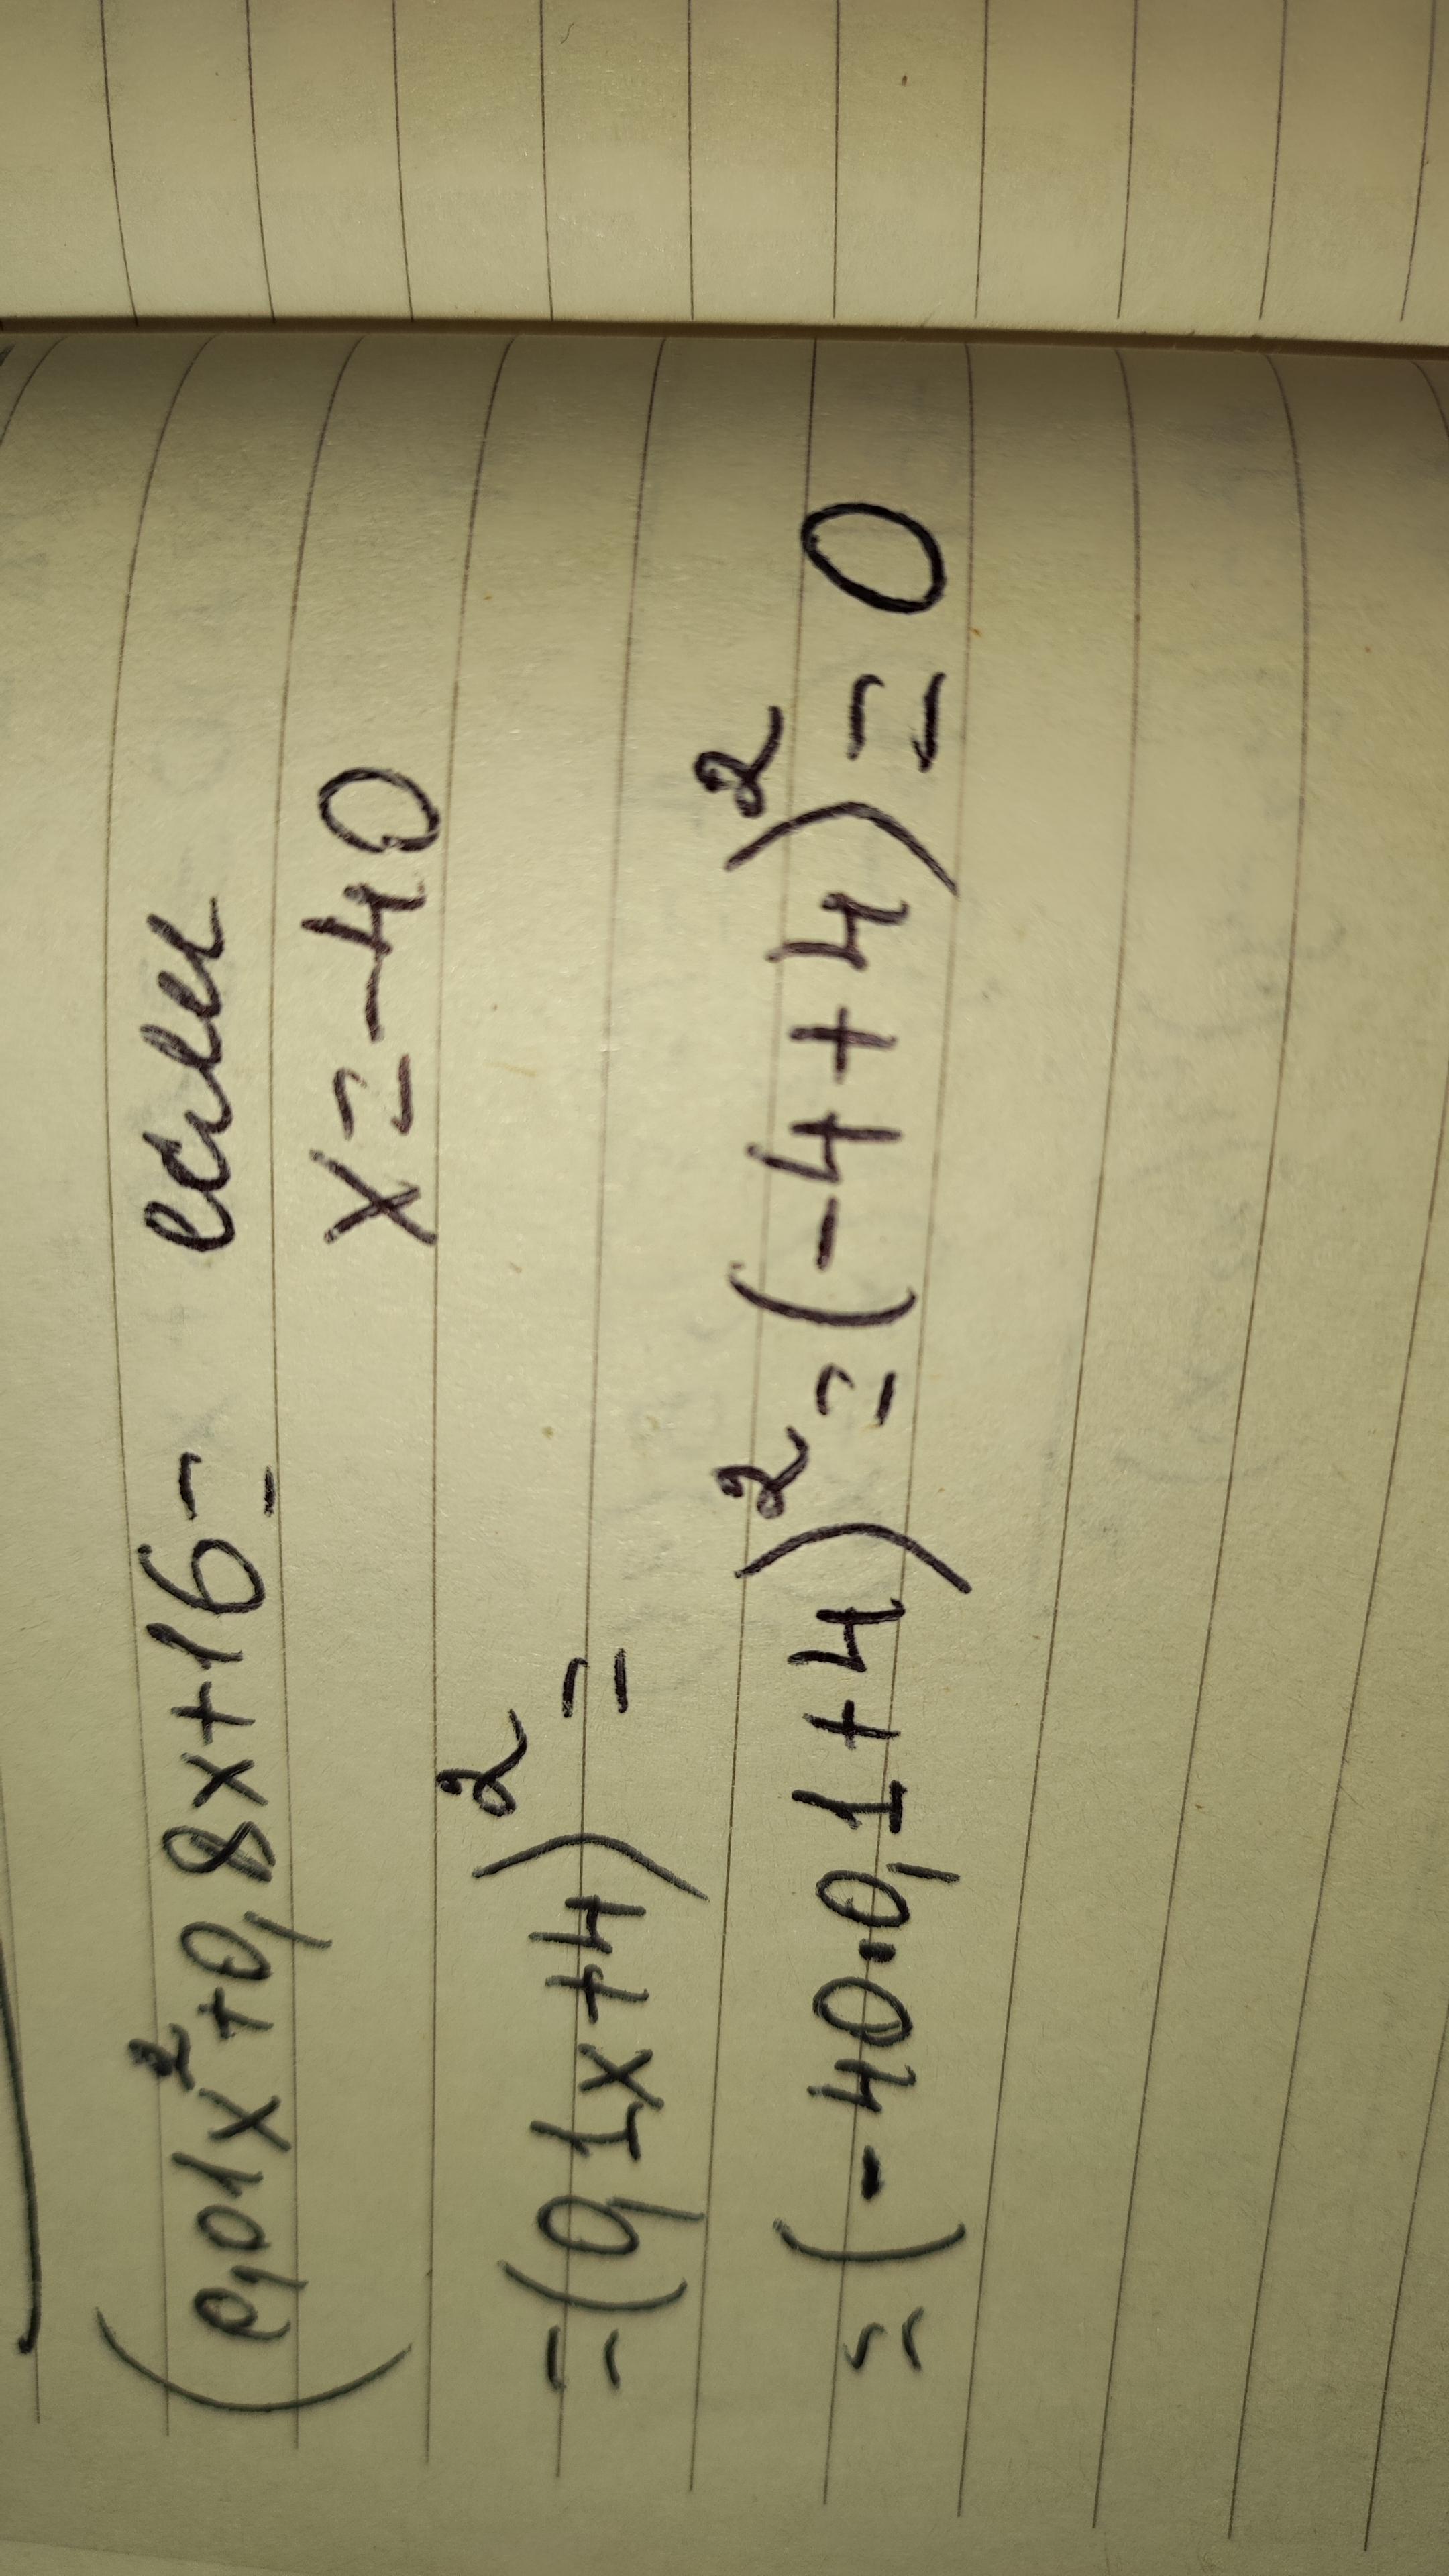 (0,01x²+0,8x+16= если
x=-40
=(0,1x+4)²=
=(-40·0,1+4)²=(-4+4)²=0